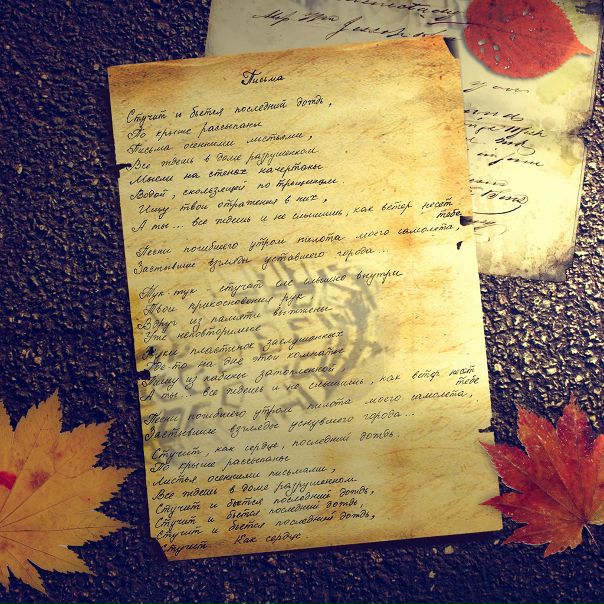 Письма
Стучит и бьется последний дождь,
По крыше рассыпаны
Письма осенними листьями,
Все ждешь в доме разрушенном
Мысли на стенах начертаны
Водой, скользящей по трещинам.
Ищу твои отражения в них,
А ты... все ждешь и не слышишь, как ветер несет
тебе
Песни погибшего утром пилота моего самолета,
Застывшие взгляды уставшего города...
Тук-тук - стучат еле слышно внутри
Твои прикосновения рук
Вдруг из памяти выжжены
Уже неповторимые
Звуки пластинок заслушанных
Где-то на дне этой комнаты
Пишу из кабины затопленной
А ты... все ждешь и не слышишь, как ветер несет
тебе
Песни погибшего утром пилота моего самолета,
Застывшие взгляды уснувшего города...
Стучит, как сердце, последний дождь.
По крыше рассыпаны
Листья осенними письмами,
Все ждешь в доме разрушенном
Стучит и бьется последний дождь,
Стучит и бьется последний дождь,
Стучит и бьется последний дождь,
Стучит... Как сердце...
you